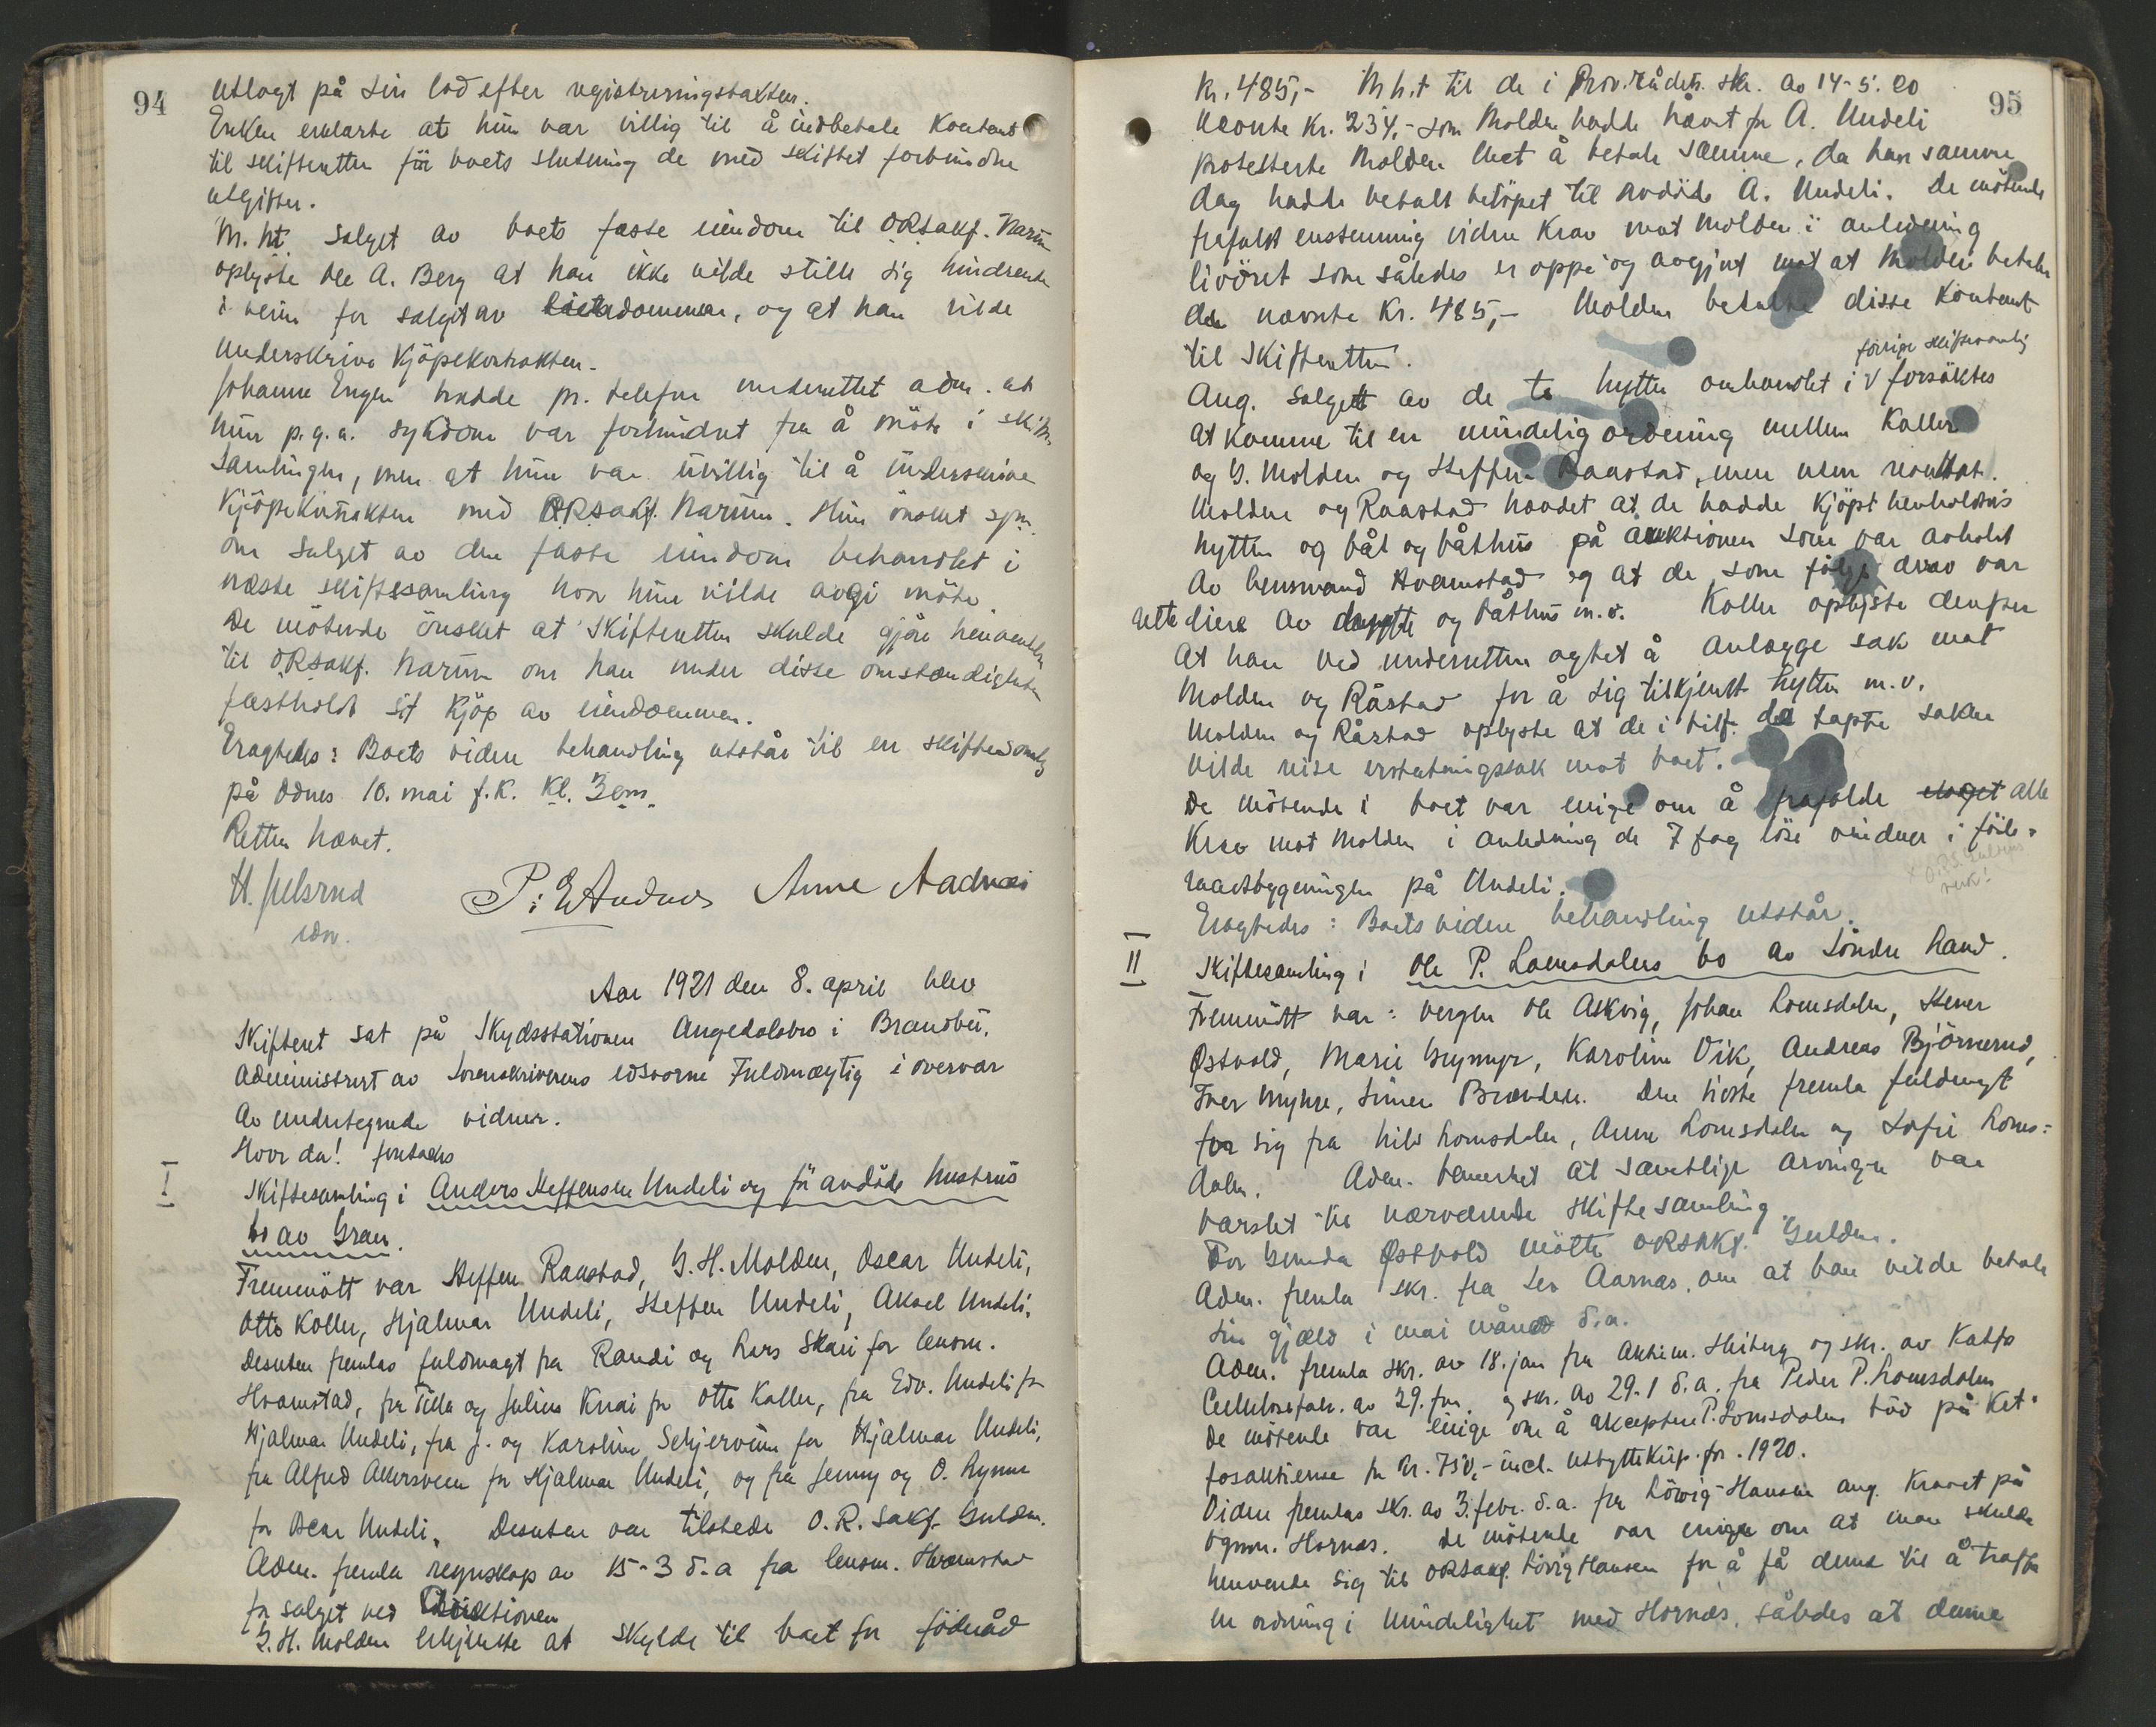 94
utlagt på sin lod efter registreringstaksten.
Enken erklærte at hun var villig til å indbetale kontant
til skifteretten før boets slutning de med skiftet forbundne
utgifter.
M.h.t. salget av boets faste eiendom til ORsakf. Narum
oplyste Ole A. Berg at han ikke vilde stille sig hindrende
i veien for salget av eiendommen, og at han vilde
underskrive kjöpekontrakten.
Johanne Engen hadde pr. telefon underrettet adm. at
hun p.g.a. sygdom var forhindret fra å möte i skifte
samlingen, men at hun var uvillig til å underskrive
kjöpekontrakten med ORsakf. Narum. Hun önsket spm.
om salget av den faste eiendom behandlet i
næste skiftesamling hvor hun vilde avgi möte.
De mötende önsket at skifteretten skulde gjöre henvendelse
til ORsakf. Narum om han under disse omstændigheter
fastholdt sit kjöp av eiendommen.
Eragtedes: Boets videre behandling utstår til en skiftesamling
på Odnes 10. mai f.k. kl. 3 em.
Retten hævet.
H. Jelsrud
edsv.
P. E. Andnes Anne Aadnæs
Aar 1921 den 8. april blev
Skifteret sat på Skydsstationen Augedalsbro i Brandbu,
administrert av Sorenskriverens edsvorne Fuldmægtig i overvær
av undertegnede vidner.
Hvor da! foretaes
I
Skiftesamling i Anders Steffensen Undeli og før avdöde hustrus
bo av Gran.
Fremmött var Steffen Raastad, G. H. Molden, Oscar Undeli,
Otto Koller, Hjalmar Undeli, Steffen Undeli, Aksel Undeli.
Desuten fremlas fuldmagt fra Randi og Lars Skari for lensm.
Hvamstad, fra Tilla og Julius Knai for Otto Koller, fra Edv. Undeli for
Hjalmar Undeli, fra J. og Karoline Schjerveim for Hjalmar Undeli,
fra Alfred Akersveen for Hjalmar Undeli, og fra Jenny og O. Lynne
for Oscar Undeli. Desuten var tilstede O.R. Sakf. Gulden.
Adm. fremla regnskap av 15-3 d.a fra lensm. Hvamstad
for salget ved Auktionen
G. H. Molden erkjendte at skylde til boet for föderåd
95
kr. 485,- M.h.t til de i Prov.rådets. skr. av 14-5-20
nævnte kr. 234,- som Molden hadde hævet for A. Undeli
protesterte Molden mot å betale samme, da han samme
dag hadde betalt belöpet til avdöde A. Undeli. De mötende
frafaldt enstemmig videre krav mot Molden i anledning
livöret som således er oppe og avgjort mot at Molden betaler
de nævnte kr. 485,- Molden betalte disse kontant
til skifteretten.
forrige skiftesamling
Ang. salget av de to hytter omhandlet i V forsöktes
at komme til en mindelig ordning mellem Koller
og G. Molden og Steffen Raastad, men uten resultat.
Molden og Raastad hævdet at de hadde kjöpt henholdsvis
hytten og båt og båthus på auktionen som var avholdt
av lensmand Hvamstad og at de som fölge derav var
rette eiere av hytte og båthus m.v. Koller oplyste derefter
at han ved underretten agtet å anlægge sak mot
Molden og Råstad for å sig tilkjendt hytten m.v.
Molden og Råstad oplyste at de i tilf. de tapte saken
vilde reise erstatningssak mot boet.
De mötende i boet var enige om å frafalde alle
krav mot Molden i anledning de 7 fag löse vinduer i föde-
raadsbygningen på Undeli.
Eragtedes: Boets videre behandling utstår.
II
Skiftesamling i Ole P. Lomsdalens bo av Söndre Land.
Fremmött var: vergen Ole Askvig, Johan Lomsdalen, Stener
Østvold, Marie Grymyr, Karoline Vik, Andreas Björnerud,
Iver Myhre, Simen Brænden. Den sidste fremla fuldmagt
for sig fra Nils Lomsdalen, Anne Lomsdalen og Sofie Loms=
dalen. Adm. bemerket at samtlige arvinger var
varslet til nærværende skiftesamling.
For Gunda Østvold mötte ORSakf. Gulden.
Adm. fremla skr. fra Lev Aarnæs, om at han vilde betale
sin gjæld i mai måned d.a.
Adm. fremla skr. av 18. jan fra Aktiem. Heiberg og skr. av Katfos
Cellulosefabr. av 29. jan. og skr. av 29-1 d.a. fra Peder P. Lomsdalen
De mötende var enige om å akceptere P. Lomsdalens bud på Kat-
fosaktierne for kr. 750,- incl. utbyttekup. for 1920.
Videre fremlas skr. av 3. febr. d.a. fra Lövig-Hansen ang. kravet på
Ogmn. Hornæs. De mötende var enige om at man skulde
henvende sig til ORsakf. Lövig Hansen for å få denne til å træffe
en ordning i mindelighet med Hornæs, således at denne